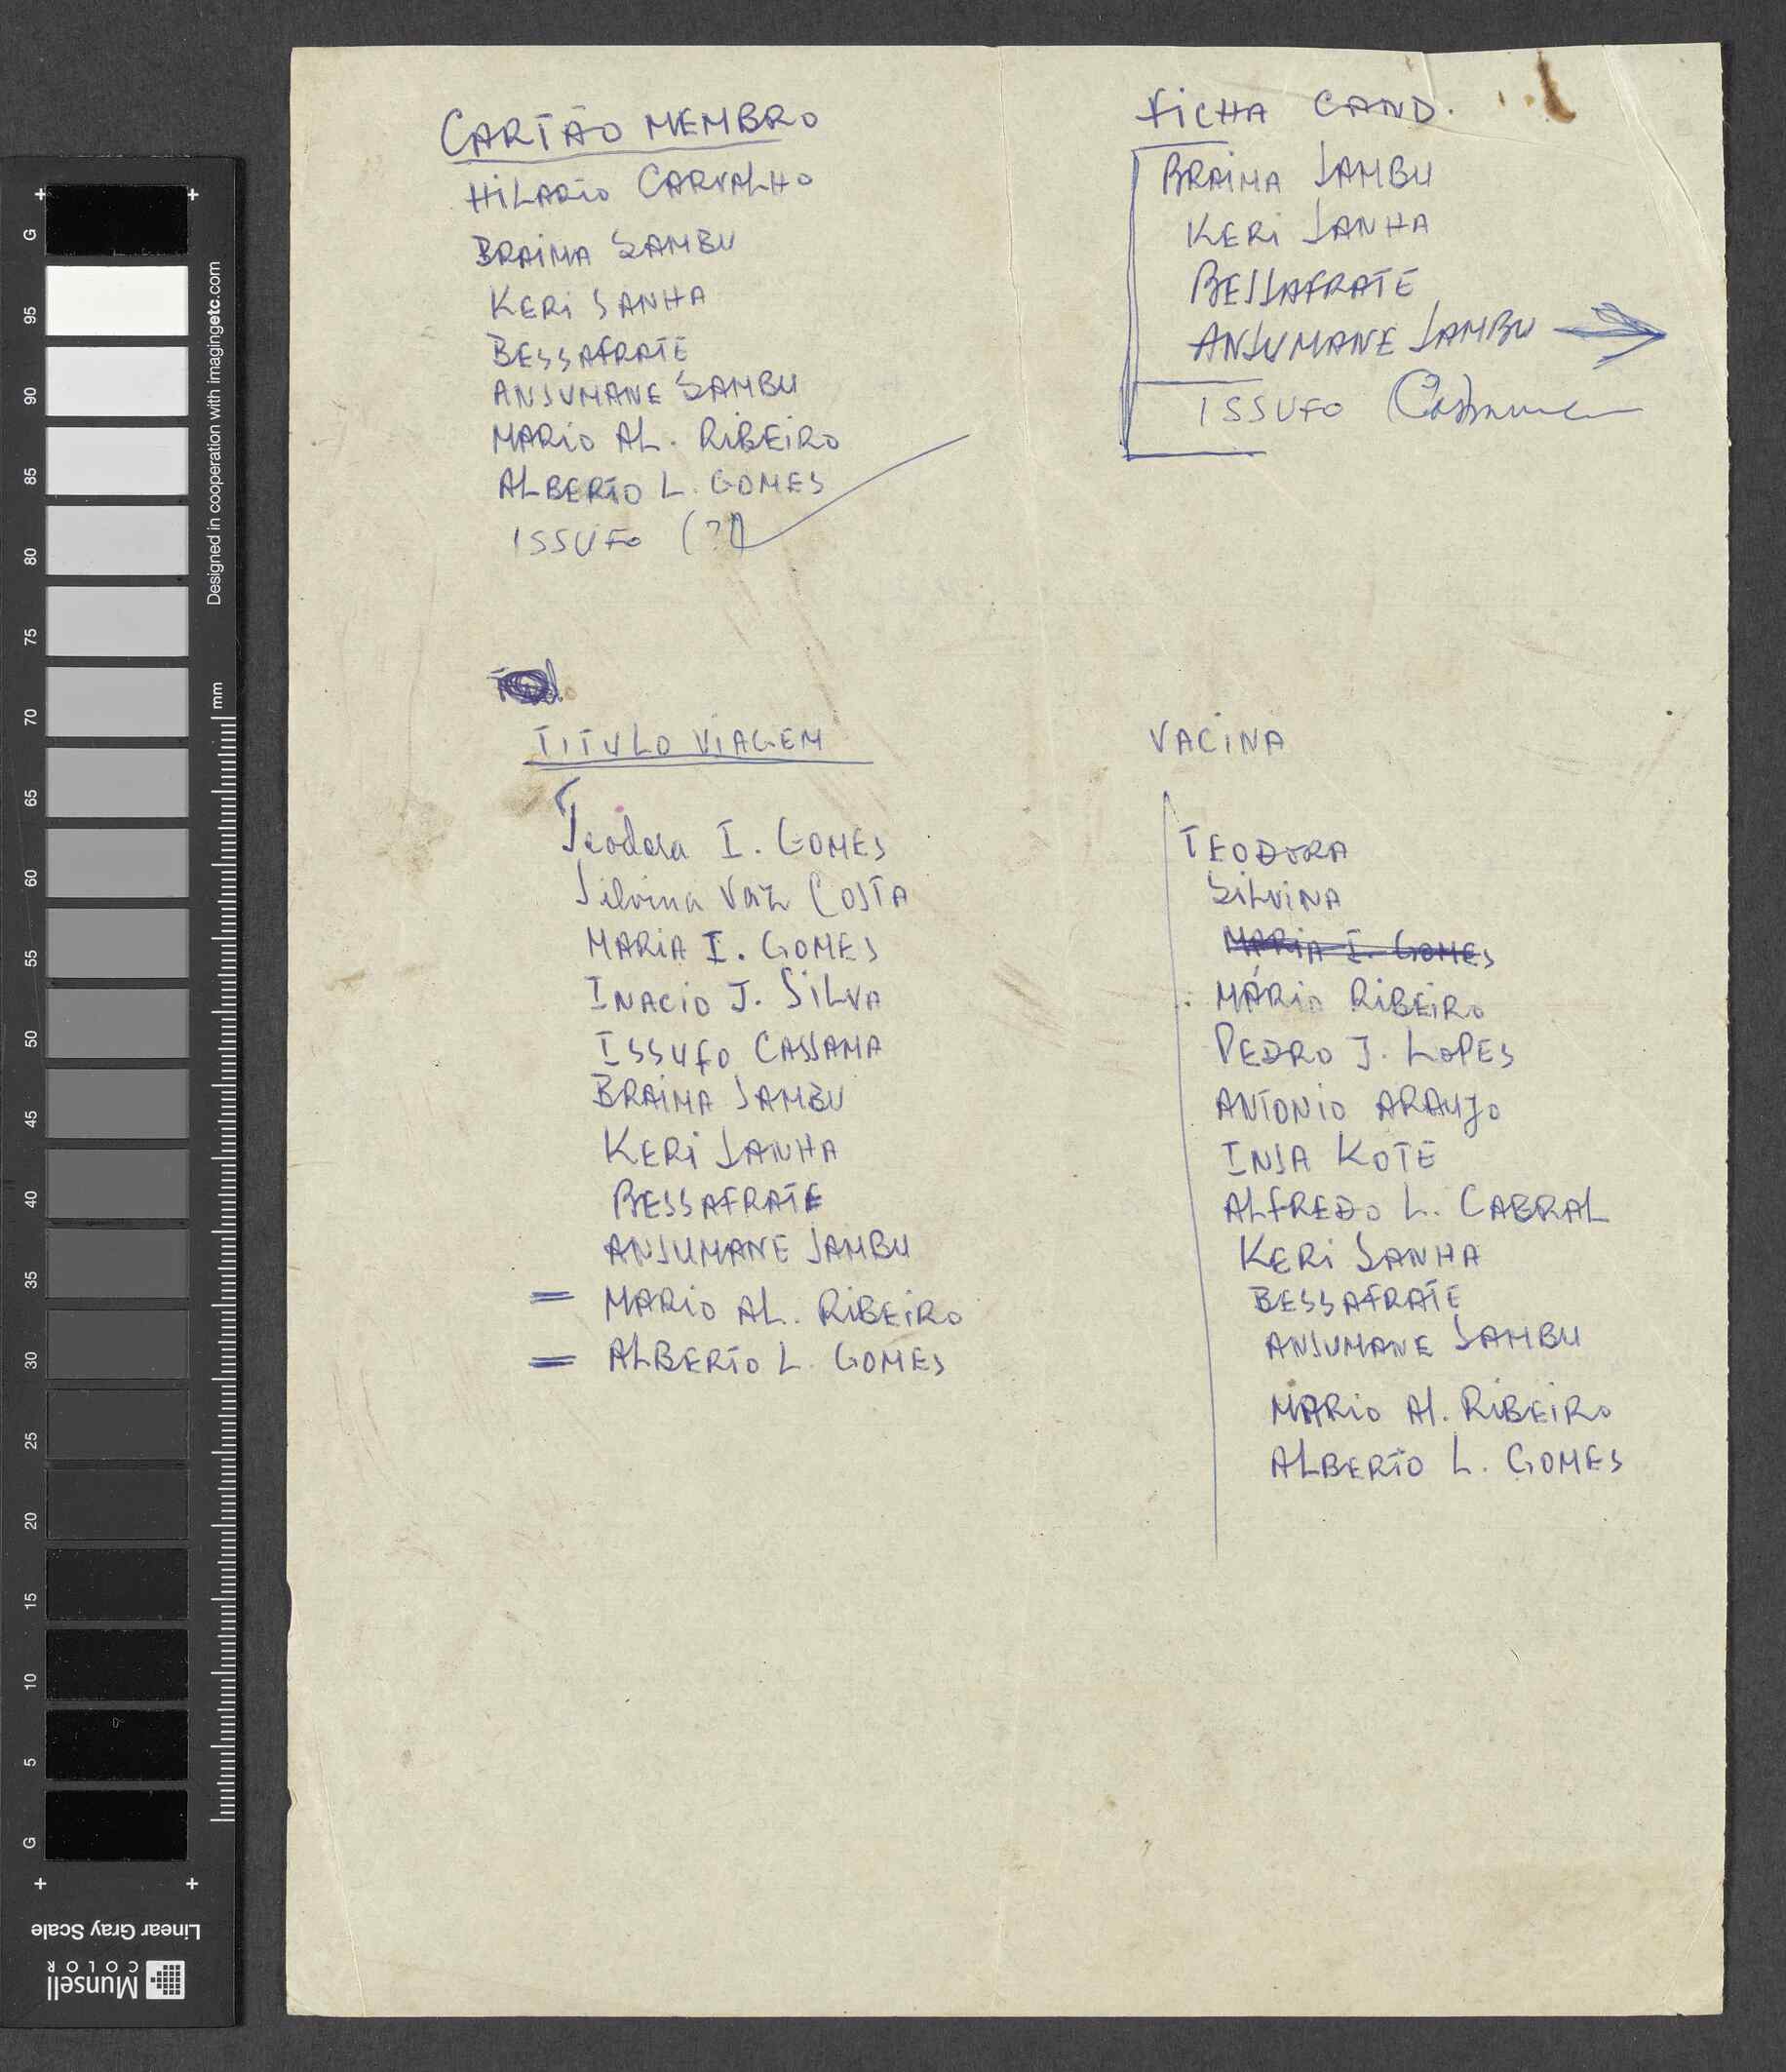 CARTÃO MEMBRO
HILARIO CARVALHO
BRAIMA SAMBU
KERI SANHA
BESSAFRATE
ANSUMANE SAMBU
MARIO AL. RIBEIRO
ALBERTO L. GOMES
ISSUFO (?)
FICHA CAND.
BRAIMA SAMBU
KERI SANHA
BESSAFRATE
ANSUMANE SAMBU
ISSUFO
TITULO VIAGEM
Teodora I. GOMES
Silvina Vaz COSTA
MARIA I. GOMES
INACIO J. SILVA
ISSUFO CASSAMA
BRAIMA SAMBU
KERI SANHA
BESSAFRATE
ANSUMANE SAMBU
= MARIO AL. RIBEIRO
= ALBERTO L. GOMES
VACINA
TEODORA
SILVINA
MARIA I. GOMES
MÁRIO RIBEIRO
PEDRO J. LOPES
ANTONIO ARAUJO
INSA KOTE
ALFREDO L. CABRAL
KERI SANHA
BESSAFRATE
ANSUMANE SAMBU
MARIO Al. RIBEIRO
ALBERTO L. GOMES
G
95
90
85
80
75
70
65
60
55
50
45
40
35
30
25
20
15
10
5
G
Designed in cooperation with imagingetc.com
mm
Linear Gray Scale
Munsell
COLOR